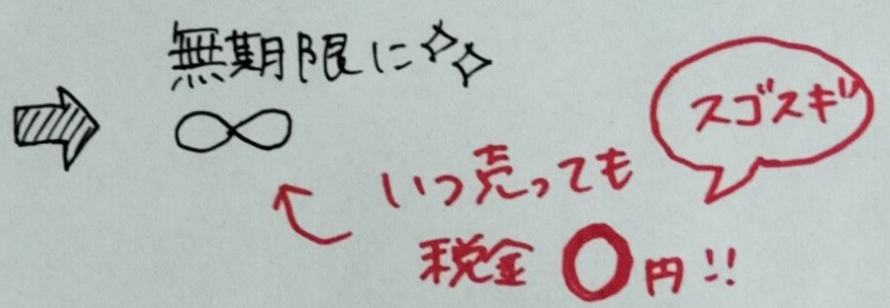 無期限に
∞
スゴスギ
いつ売っても
税金0円!!